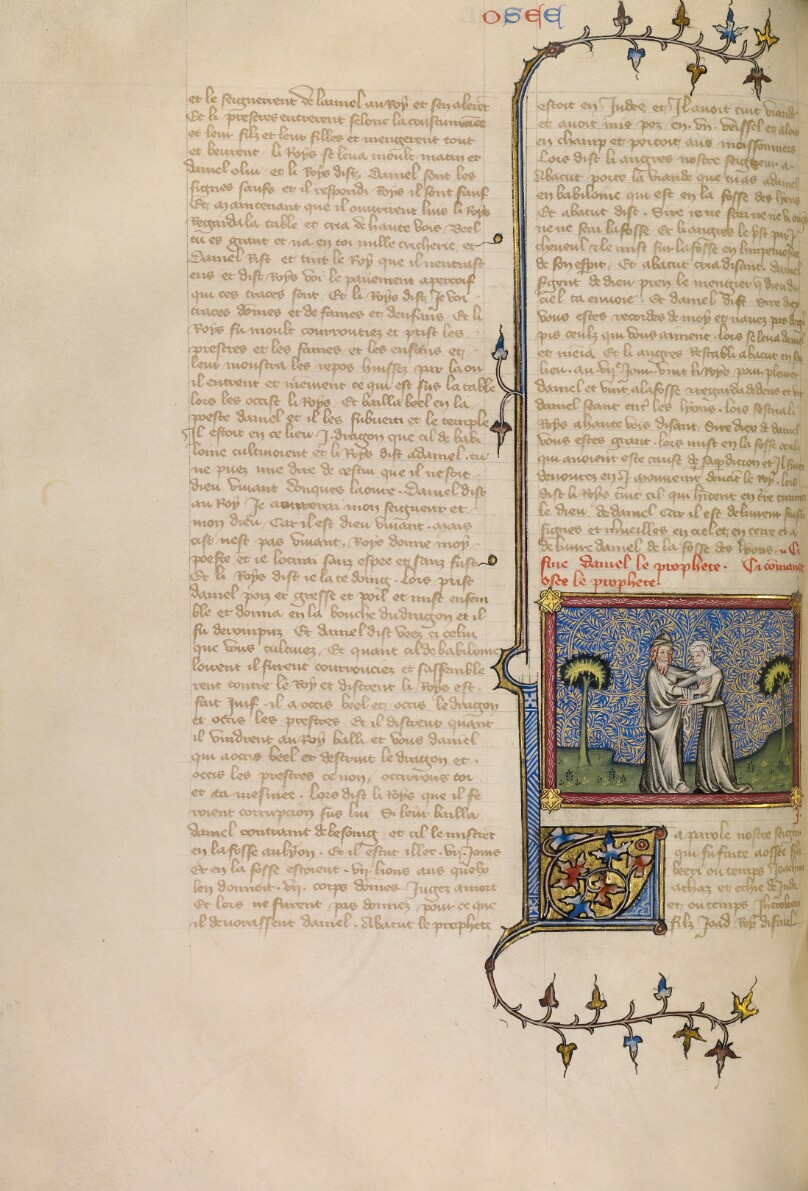 OSEE
et le seignerent de lannel au Roy et sen alerent
Et li prestres entrerent selonc la coustumance
et leur filz et leur filles et mengerent tout
et beurent. li Roys se leva moult matin et
daniel o lui. et li Roys dist. Daniel sont les
signes saufs. et il respondi Roys il sont sauf
Et maintenant que il ouvrirent luis li Roys
Regarda la table et cria de haute vois. Beel
tu es grant et na en toi nulle tricherie. et
Daniel Rist et tint le Roy que il nentrast
ens et dist. Roys voi le pavement apercoif
qui ces traces sont. Et li Roys dist. Je voi
traces domes et de fames et denfans. Et li
Roys fu moult courrouciez et prist les
prestres et les fames et les enfans et
leur monstra les repos huissez par la ou
il entrent et ce qui est sus la table
lors les occist li Roys. Et bailla beel en la
poeste daniel et il les subverti et le temple
Il estoit en ce lieu .I. dragon que cil de babi
loine cultivoient et li Roys dist a daniel. tu
ne puez mie dire de cestui que il ne soit
dieu vivant donques laoure. Daniel dist
au Roy Je aourerai mon seigneur et
mon dieu. Car il est dieu vivant. mais
cist nest pas vivant. Roys donne moy
poeste et je locirai sanz espee et sanz fust
Et li Roys dist je la te doing. Lors prist
daniel poiz et gresse et poil et mist ensem
ble et donna en la bouche du dragon et il
fu derompuz. Et daniel dist veez ci celui
que vous cultivez. Et quant cil de babiloine
loirent il furent courrouciez et sassemble
rent contre le Roy et distrent li Roys est
fait Juif. il a occis beel et occis le dragon
et occis les prestres. Et il distrent quant
il vindrent au Roy balli et vous daniel
qui a occis beel et destruit le dragon et
occis les prestres ce non, occirons toi
et ta mesniee. Lors dist li Roys que il fe
roient corrupcion sus lui Si leur bailla
daniel contraint de besoing. et cil le mistrent
en la fosse au lyon. Et il estut illec .vii. Jours
Et en la fosse estoient .vii. lions aus quelx
len donnoit .vii. corps domes Jugez a mort
Et lors ne furent pas donnez pour ce que
il devorassent daniel. Abacuc le prophete
estoit en Judee et Il avoit cuit viande
et avoit mis poz en .vn. veissel et aloit
en champ et portoit aus moissonneurs
Lors dist li angres nostre seigneur a
Abacuc porte la viande que tu as a daniel
en babiloine qui est en la fosse des lyons
Et abacuc dist. Sire je ne sai ne ne
ne ne sai la fosse. Et li angres le prist par
cheveul et le mist sus la fosse en
de son esprit. Et abacuc cria disant. daniel
sergent de dieu, pren le mengier que dieu du
ciel ta envoie. Et daniel dist Sire diex
vous estes recordes de moy et navez pas
pis ceulz qui vous aiment. lors se leva daniel
et menja. Et li angres Restabli abacuc en son
lieu. au .vii. Jour vint li Roys pour plourer
daniel et vint a la fosse et regarda dedens et vit
daniel seant entre les lyons. lors sescria li
Roys a haute vois disant. Sire diex de daniel
vous estes grant. lors mist en la fosse ceulz
qui avoient este cause de sa perdicion et Il furent
devourez en .I. moument devant le Roy. Lors
dist li Roys tuit cil qui habitent en terre craiment
le dieu de daniel car il est delivreur faisant
signes et merveilles en ciel et en terre et a
delivre daniel de la fosse des lyons. Ci
fine daniel le prophete. Ci comance
osee le prophete.
La parole nostre seigneur
qui fu faite a osee filz
beeri ou temps Joachan
achaz et echie de Juda
et ou temps Jheroboam
filz Joad Roy disrael